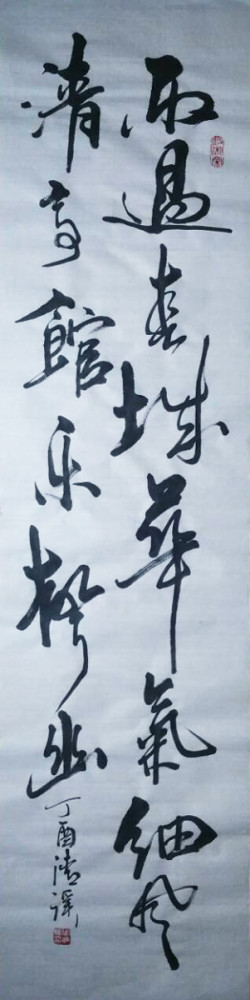 雨過春城華氣細風
清亭館乐聲幽
丁酉